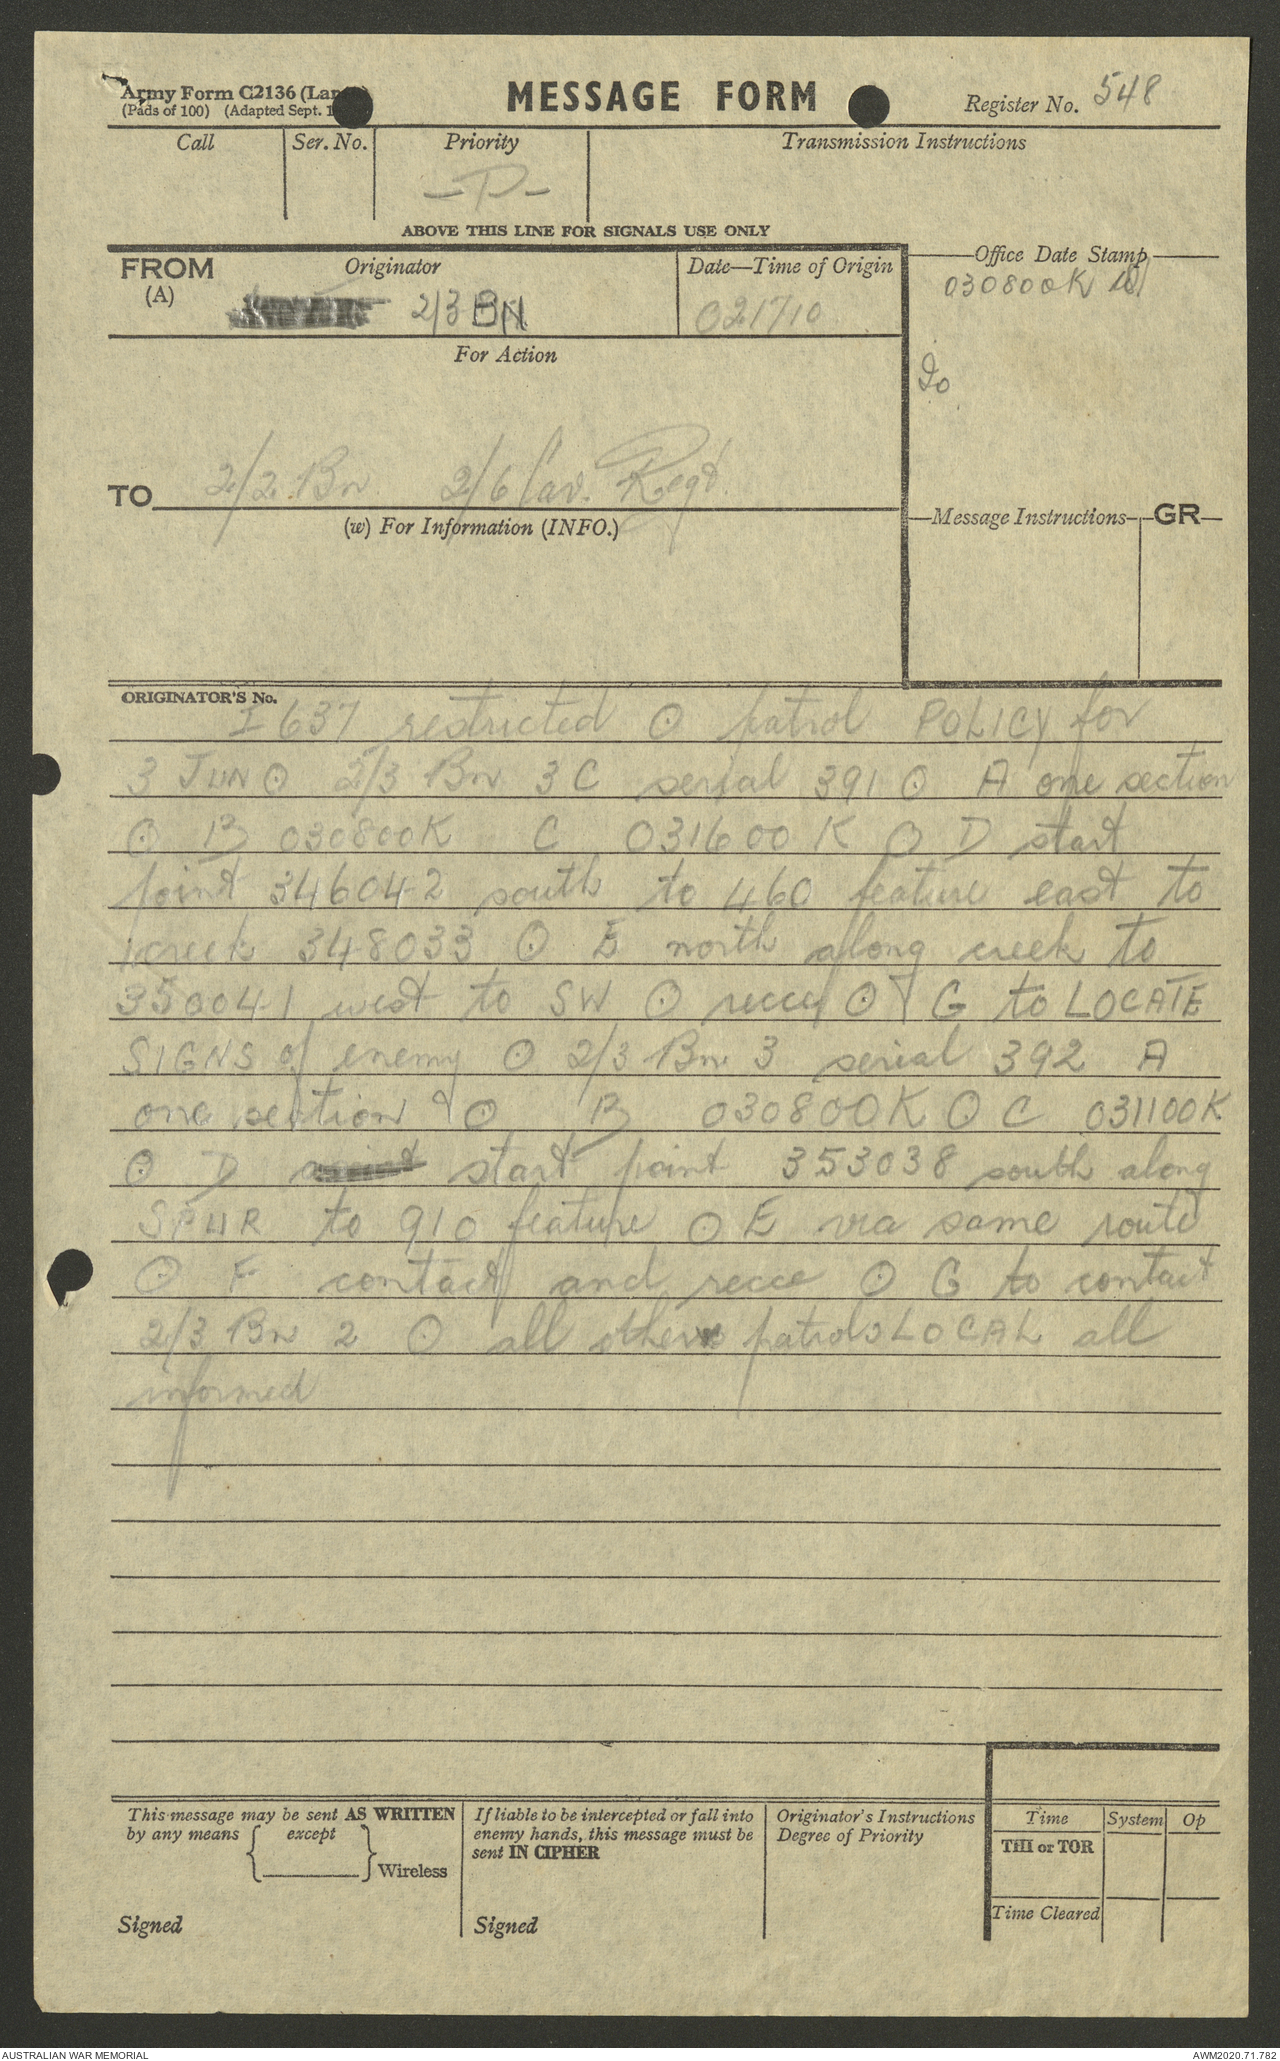 Army Form C2136 (Lar
(Pads of 100) (Adapted Sept. 1
MESSAGE FORM
Register No. 548
Call
Ser. No.
Priority
Transmission Instructions
-P-
ABOVE THIS LINE FOR SIGNALS USE ONLY
FROM
(A)
Originator
2/3 BN
Date—Time of Origin
021710
Office Date Stamp
030800K
Io
For Action
TO 2/2 Bn 2/6 Cav. Regt.
(w) For Information (INFO.)
Message Instructions
GR
ORIGINATOR'S No.
I 637 restricted ⊙ patrol POLICY for
3 JUN ⊙ 2/3 Bn 3 C serial 391 ⊙ A one section
⊙ B 030800K C 031600 K ⊙ D start
point 346042 south to 460 feature east to
creek 348033 ⊙ E north along creek to
350041 west to SW ⊙ reccy ⊙ G to LOCATE
SIGNS of enemy ⊙ 2/3 Bn 3 serial 392 A
one section ⊙ B 030800K ⊙ C 031100K
⊙ D start point 353038 south along
SPUR to 910 feature ⊙ E via same route
⊙ F contact and recce ⊙ G to contact
2/3 Bn 2 ⊙ all other patrols LOCAL all
informed
This message may be sent AS WRITTEN
by any means except
Wireless
Signed
If liable to be intercepted or fall into
enemy hands, this message must be
sent IN CIPHER
Signed
Originator's Instructions
Degree of Priority
Time
System
Op
THI or TOR
Time Cleared
AUSTRALIAN WAR MEMORIAL
AWM2020.71.782